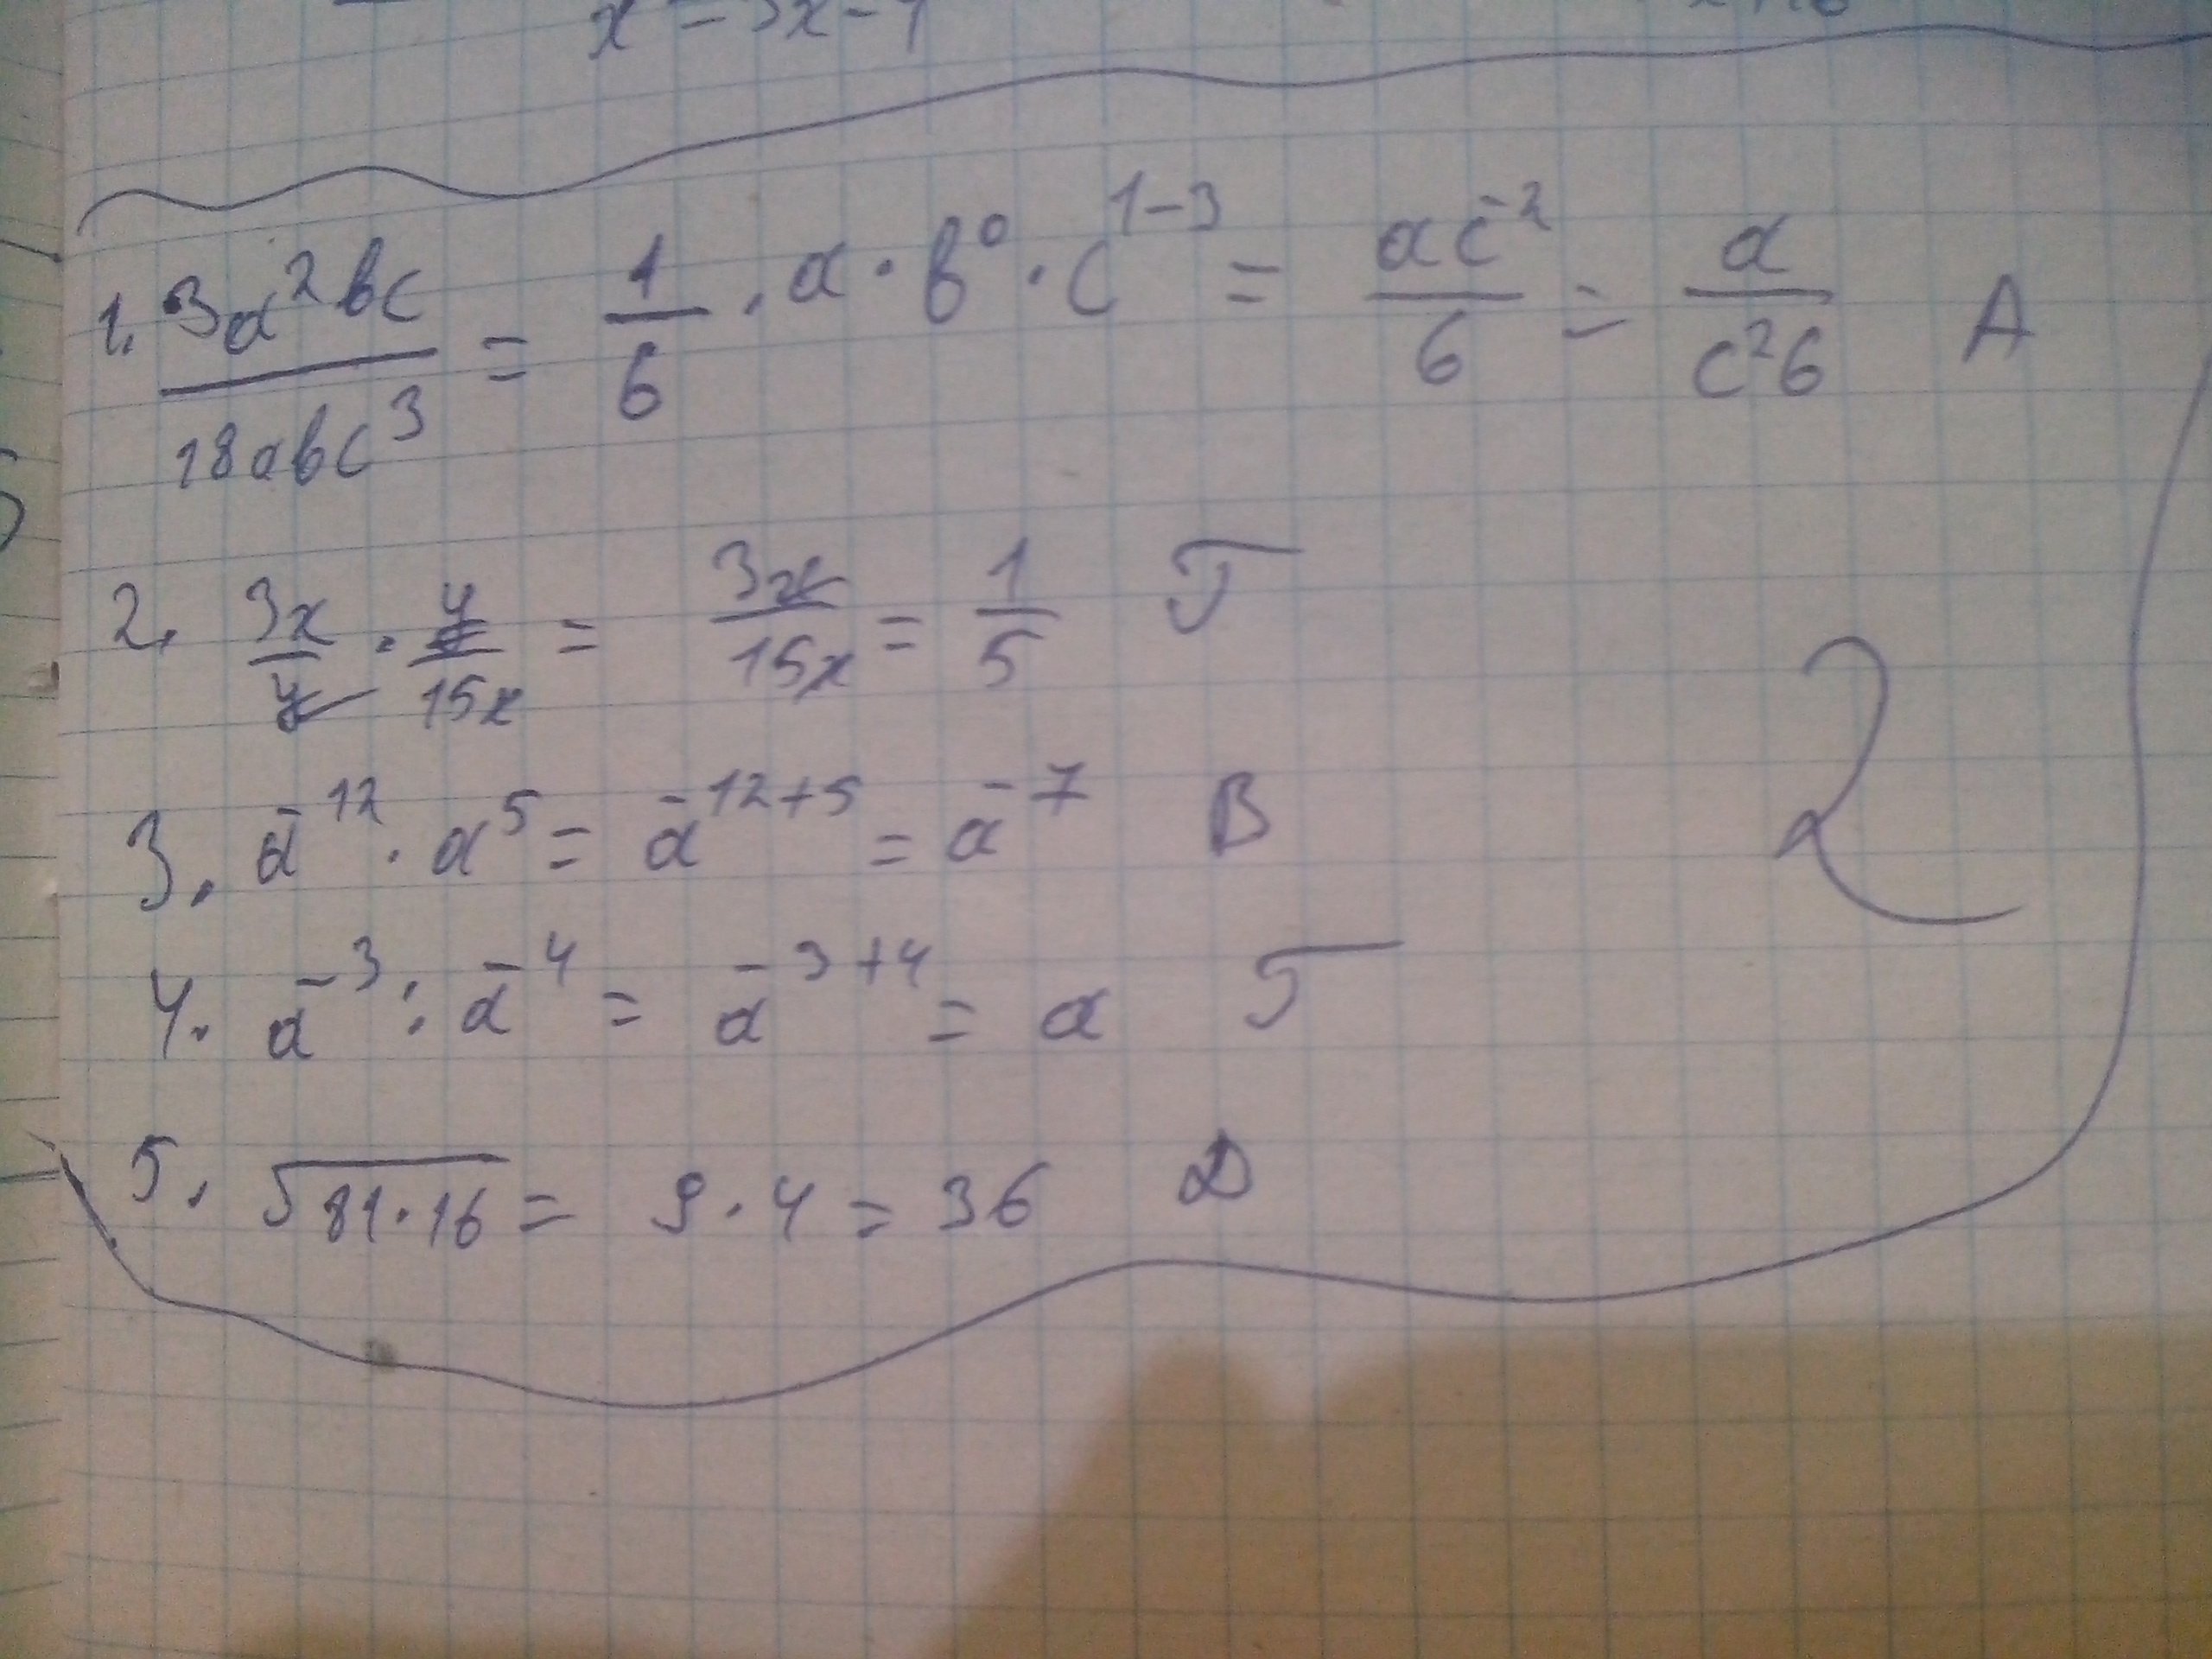 1. 3a²bc / 18abc³ = 1/6 · a · b⁰ · c¹⁻³ = ac⁻²/6 = a/c²6 A
2. 3x/y · y/15x = 3x/15x = 1/5 Г
3. a⁻¹² · a⁵ = a⁻¹²⁺⁵ = a⁻⁷ В
4. a⁻³ : a⁻⁴ = a⁻³⁺⁴ = a Г
5. √81·16 = 9·4 = 36 D
2